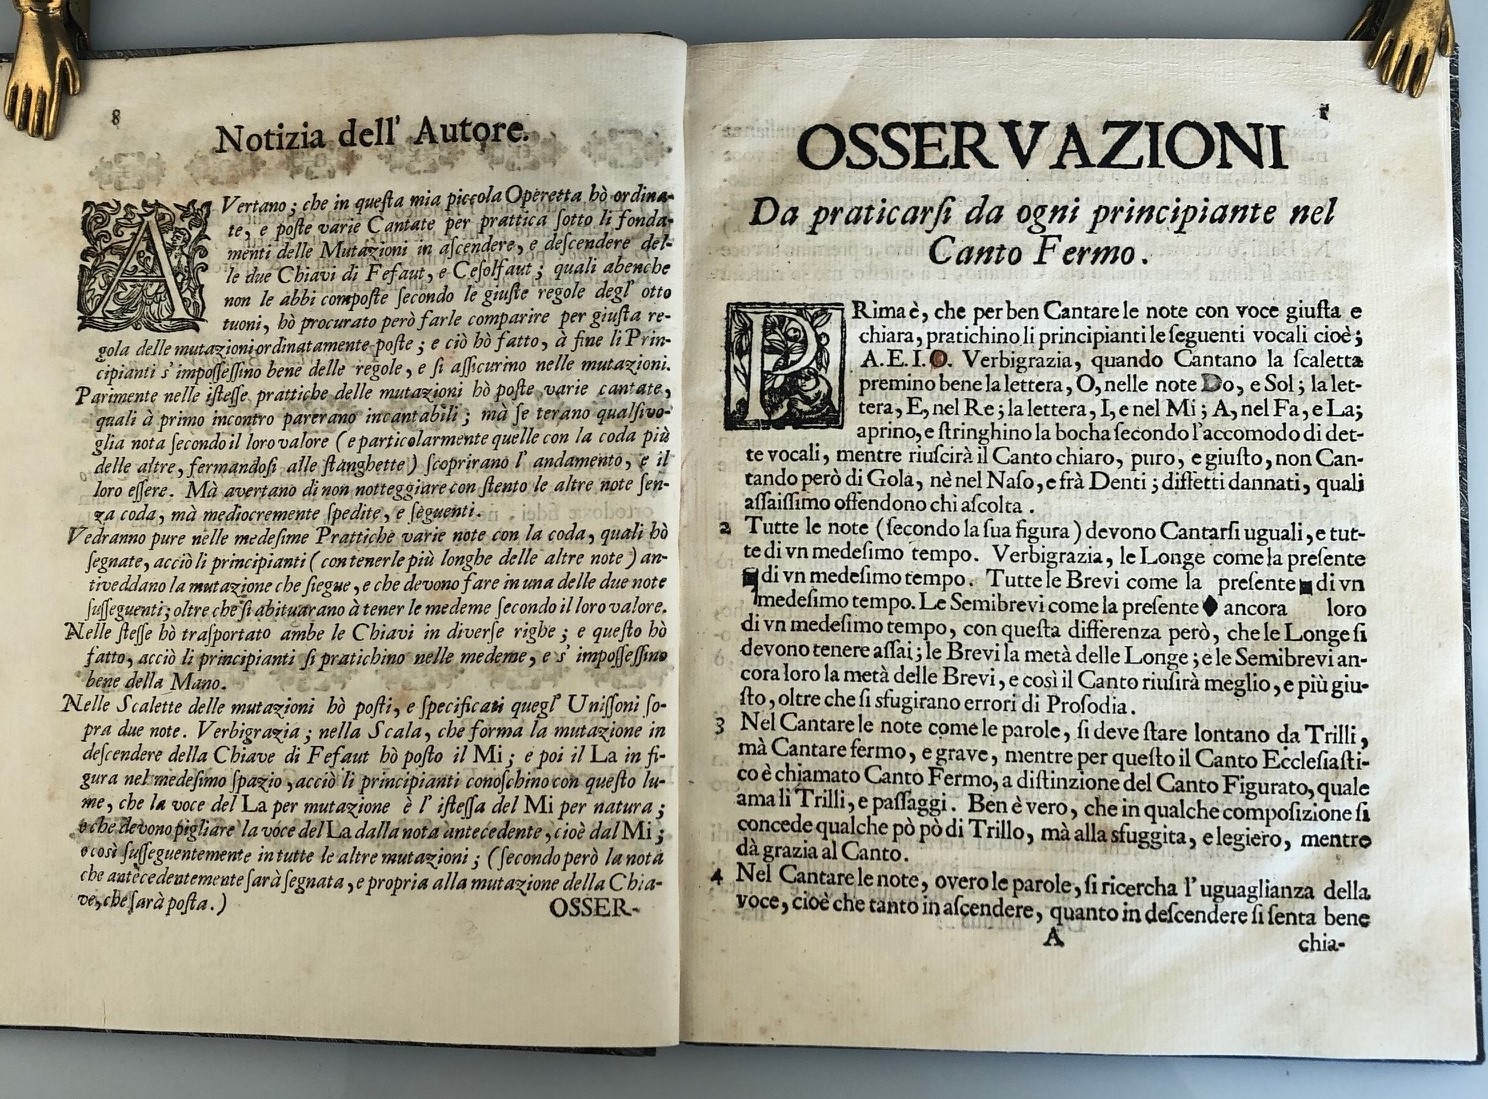 8
Notizia dell' Autore.
AVertano; che in questa mia piccola Operetta hò ordina-
te, e poste varie Cantate per prattica sotto li fonda-
menti delle Mutazioni in ascendere, e descendere del-
le due Chiavi di Fefaut, e Cesolfaut; quali abenche
non le abbi composte secondo le giuste regole degl' otto
tuoni, hò procurato però farle comparire per giusta re-
gola delle mutazioni ordinatamente poste; e ciò hò fatto, à fine li Prin-
cipianti s' impossessino bene delle regole, e si assicurino nelle mutazioni.
Parimente nelle istesse prattiche delle mutazioni hò poste varie cantate,
quali à primo incontro parerano incantabili; mà se terano qualsivo-
glia nota secondo il loro valore (e particolarmente quelle con la coda più
delle altre, fermandosi alle stanghette) scoprirano l' andamento, e il
loro essere. Mà avertano di non notteggiare con stento le altre note sen-
za coda, mà mediocremente spedite, e seguenti.
Vedranno pure nelle medesime Prattiche varie note con la coda, quali hò
segnate, acciò li principianti (con tenerle più longhe delle altre note) an-
tiveddano la mutazione che siegue, e che devono fare in una delle due note
susseguenti; oltre che si abituarano à tener le medeme secondo il loro valore.
Nelle stesse hò trasportato ambe le Chiavi in diverse righe; e questo hò
fatto, acciò li principianti si pratichino nelle medeme, e s' impossessino
bene della Mano.
Nelle Scalette delle mutazioni hò posti, e specificati quegl' Unissoni so-
pra due note. Verbigrazia; nella Scala, che forma la mutazione in
descendere della Chiave di Fefaut hò posto il Mi; e poi il La in fi-
gura nel medesimo spazio, acciò li principianti conoschino con questo lu-
me, che la voce del La per mutazione è l' istessa del Mi per natura;
e che devono pigliare la voce del La dalla nota antecedente, cioè dal Mi;
e così susseguentemente in tutte le altre mutazioni; (secondo però la nota
che antecedentemente sarà segnata, e propria alla mutazione della Chia-
ve, che sarà posta.)
OSSER-
1
OSSERVAZIONI
Da praticarsi da ogni principiante nel
Canto Fermo.
PRima è, che per ben Cantare le note con voce giusta e
chiara, pratichino li principianti le seguenti vocali cioè;
A. E. I. O. Verbigrazia, quando Cantano la scaletta
premino bene la lettera, O, nelle note Do, e Sol; la let-
tera, E, nel Re; la lettera, I, e nel Mi; A, nel Fa, e La;
aprino, e stringhino la bocha secondo l'accomodo di det-
te vocali, mentre riuscirà il Canto chiaro, puro, e giusto, non Can-
tando però di Gola, nè nel Naso, e frà Denti; diffetti dannati, quali
assaissimo offendono chi ascolta.
2 Tutte le note (secondo la sua figura) devono Cantarsi uguali, e tut-
te di vn medesimo tempo. Verbigrazia, le Longe come la presente
di vn medesimo tempo. Tutte le Brevi come la presente di vn
medesimo tempo. Le Semibrevi come la presente ancora loro
di vn medesimo tempo, con questa differenza però, che le Longe si
devono tenere assai; le Brevi la metà delle Longe; e le Semibrevi an-
cora loro la metà delle Brevi, e così il Canto riusirà meglio, e più giu-
sto, oltre che si sfugirano errori di Prosodia.
3 Nel Cantare le note come le parole, si deve stare lontano da Trilli,
mà Cantare fermo, e grave, mentre per questo il Canto Ecclesiasti-
co è chiamato Canto Fermo, a distinzione del Canto Figurato, quale
ama li Trilli, e passaggi. Ben è vero, che in qualche composizione si
concede qualche pò pò di Trillo, mà alla sfuggita, e legiero, mentre
dà grazia al Canto.
4 Nel Cantare le note, overo le parole, si ricercha l' uguaglianza della
voce, cioè che tanto in ascendere, quanto in descendere si senta bene
A
chia-